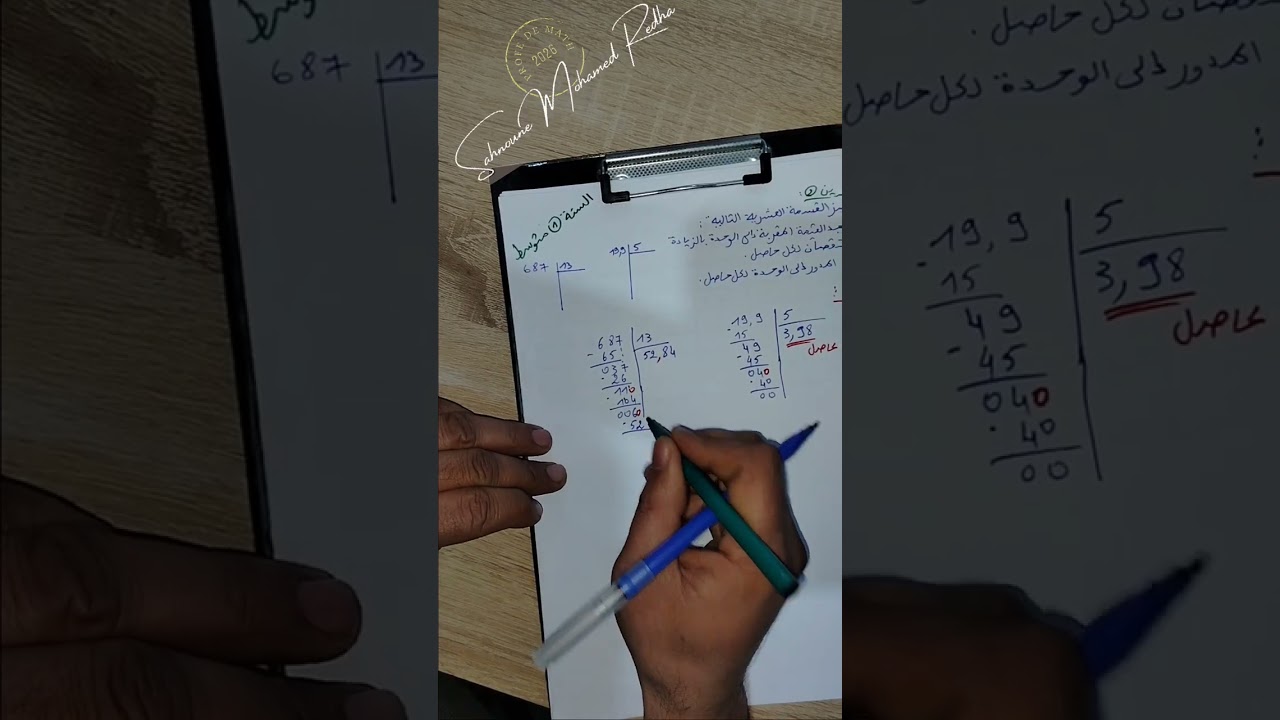 PROFE DE MATH
2026
Sahnoune Mohamed Redha
السنة ① متوسط
القسمة العشرية التالية :
بالزيادة
لكل حاصل .
المدور إلى الوحدة لكل حاصل .
687 13
19,9 5
687 13
- 65 52,84
037
- 26
110
- 104
0060
- 52
- 19,9 5
15 3,98
49 حاصل
- 45
040
- 40
00
687 13
لكل حاصل .
المدور إلى الوحدة لكل حاصل
- 19,9 5
15 3,98
49 حاصل
- 45
040
- 40
00